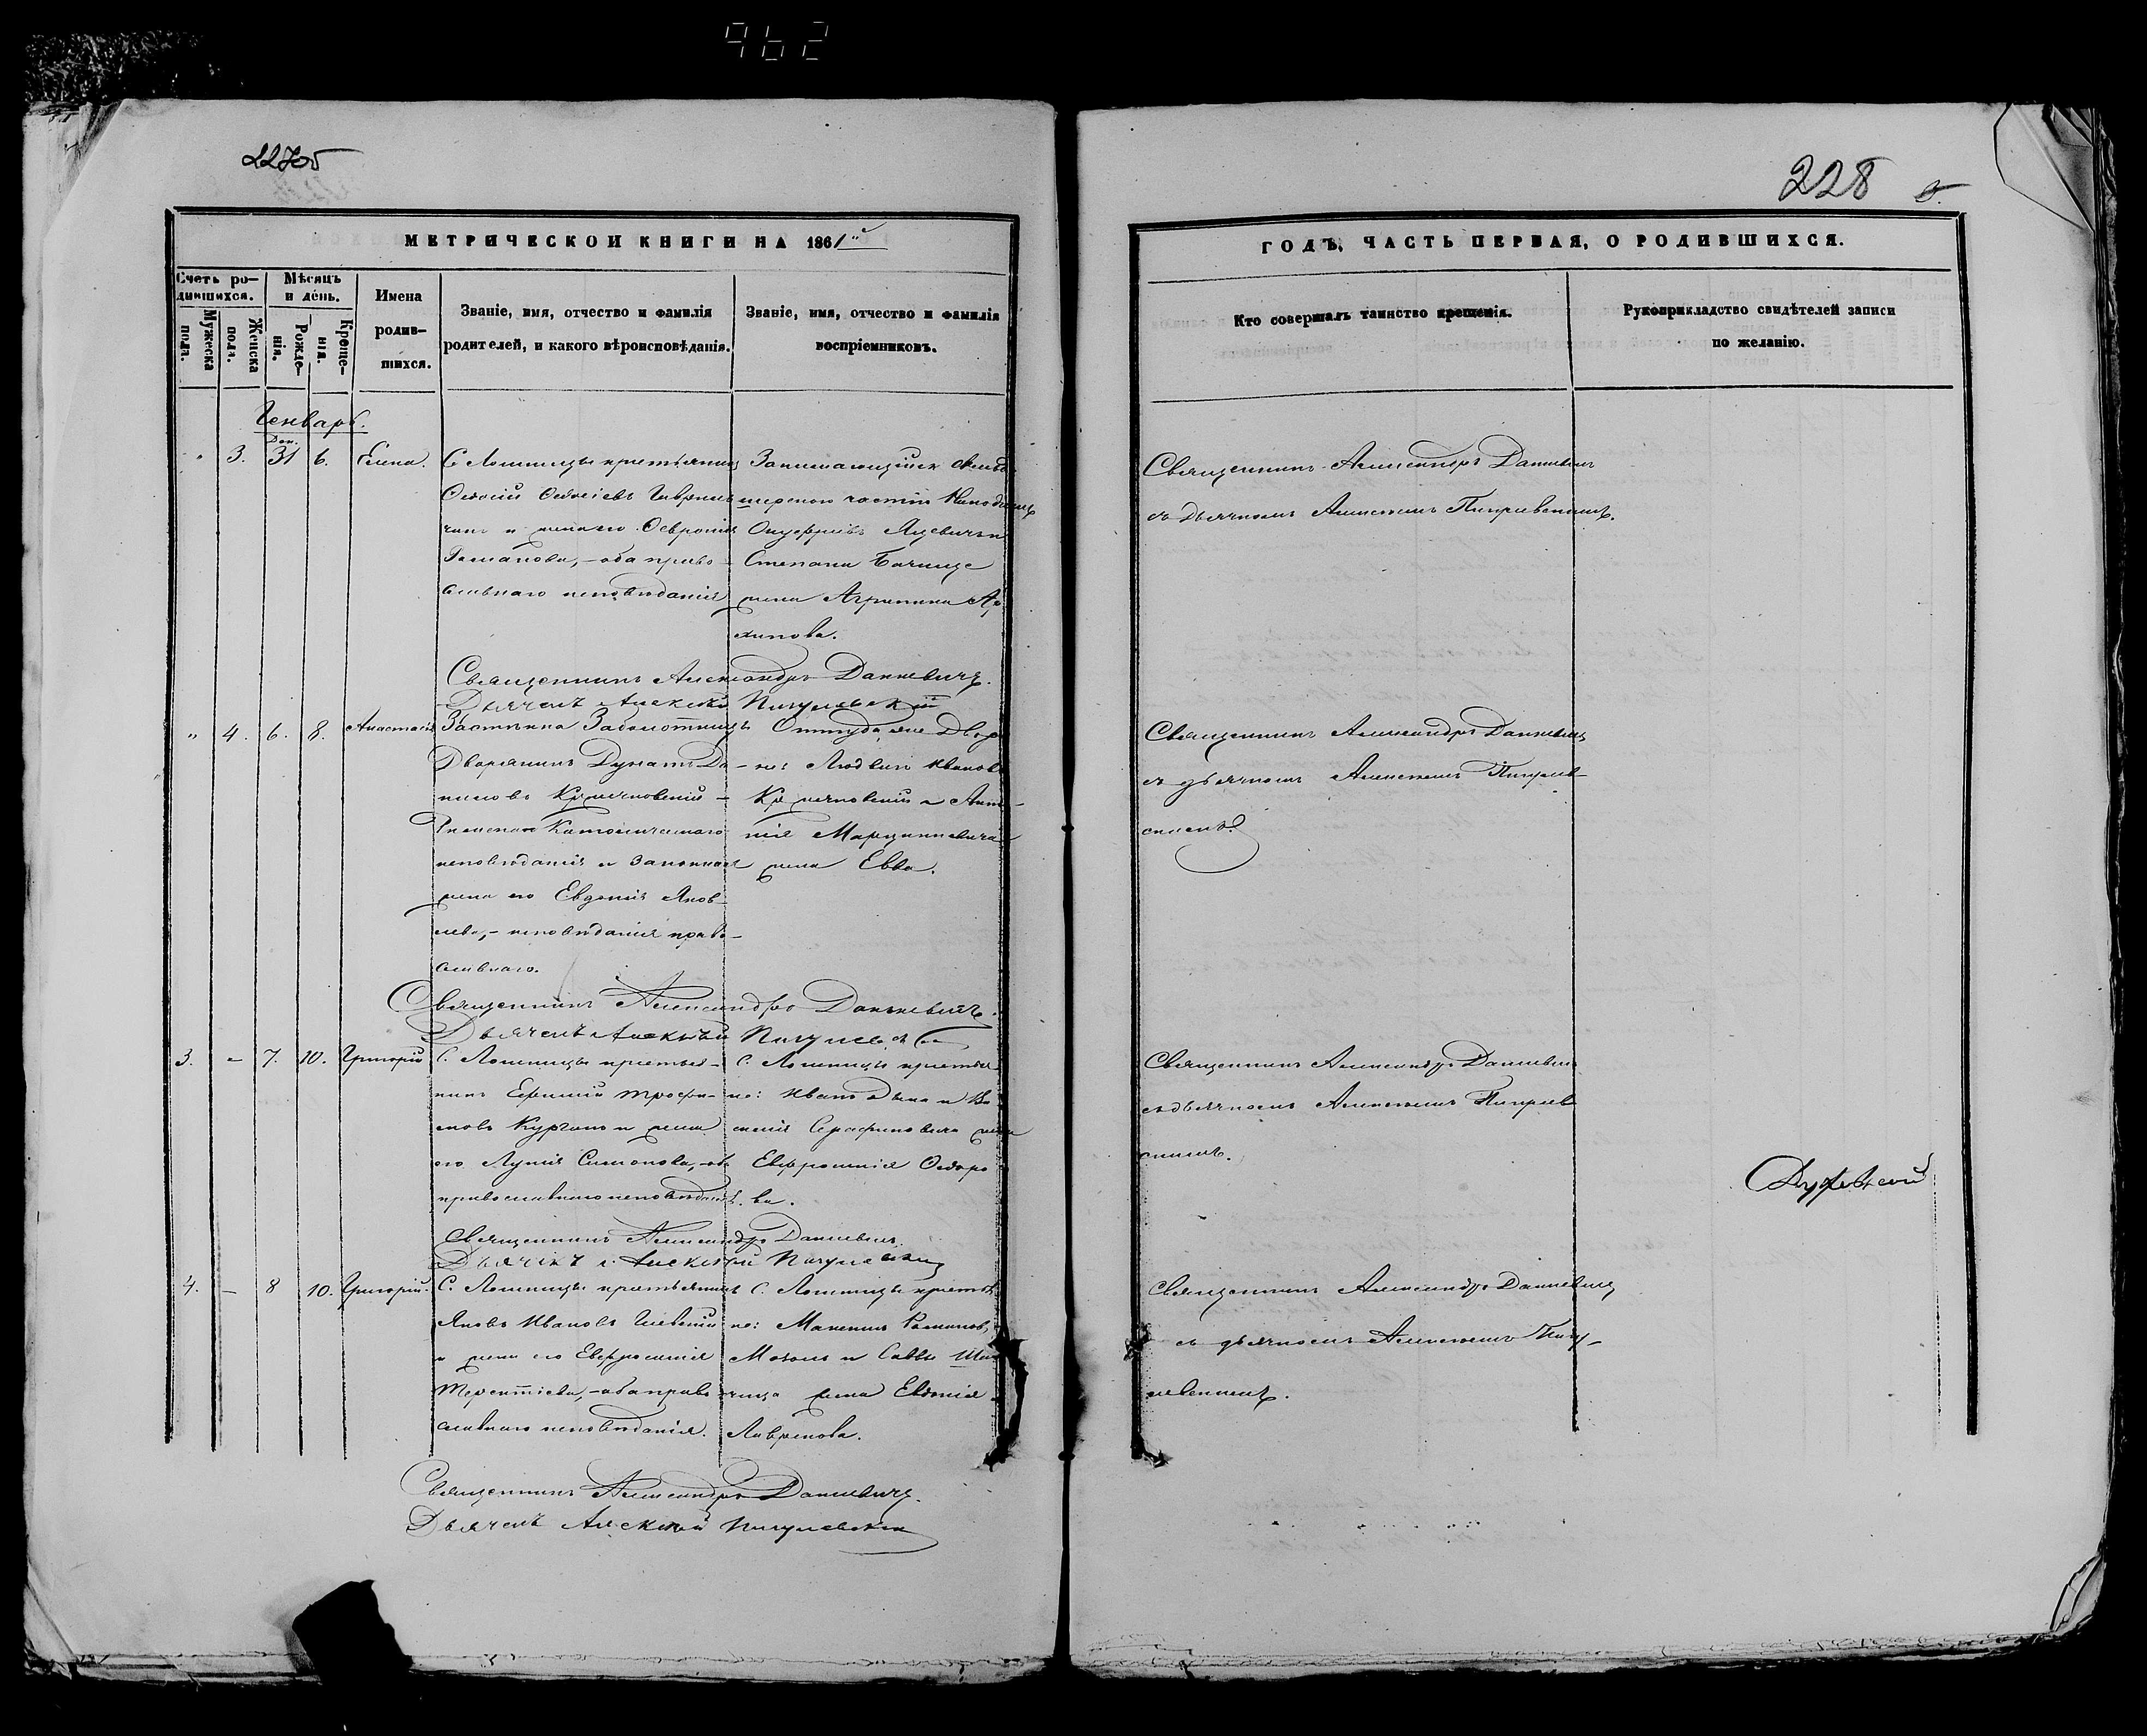 962
227об
228
МЕТРИЧЕСКОЙ КНИГИ НА 1861й
ГОДЪ, ЧАСТЬ ПЕРВАЯ, О РОДИВШИХСЯ.
Счетъ ро-
дившихся.
Мужеска
пола.
Женска
пола.
Мѣсяцъ
и день.
Рожде-
нія.
Креще-
нія.
Имена
родив-
шихся.
Званіе, имя, отчество и фамилія
родителей, и какого вѣроисповѣданія.
Званіе, имя, отчество и фамилія
воспріемниковъ.
Кто совершалъ таинство крещенія.
Рукоприкладство свидѣтелей записи
по желанію.
Генварь.
" 3. Дек. 31 6. Елена.
С. Ломницы крестьянинъ
Ѳедосій Ѳедосіевъ
и жена его Ѳевронія
Романова, - оба право-
славнаго исповѣданія
Степана
жена Агрипина Ар-
хипова.
Священникъ Александръ Данкевичъ
съ дьячкомъ Алексѣемъ Пигулевскимъ.
Священникъ Александръ Данкевичъ.
Дьячекъ Алексѣй Пигулевскій
" 4. 6. 8. Анастасія
Застѣнка
Дворянинъ Да-
ниловъ
Римско Католическаго
исповѣданія и законная
жена его Евдокія Яков-
лева, - исповѣданія право-
славнаго.
Оттуда же Двор-
не: Людвигъ Ивановъ
и Анто-
нія Марцинкевича
жена Евва.
Священникъ Александръ Данкевичъ
съ дьячкомъ Алексѣемъ Пигулев-
скимъ.
Священникъ Александръ Данкевичъ.
Дьячекъ Алексѣй Пигулевскій
3. - 7. 10. Григорій
С. Ломницы крестья-
нинъ Ефимій Трофи-
мовъ Курганъ и жена
его Лукія Симонова, - оба
православнаго исповѣданія.
С. Ломницы крестья-
не: Иванъ и Ва-
силія Серафиновича жена
Евфросинія Ѳедоро-
ва.
Священникъ Александръ Данкевичъ
съ дьячкомъ Алексѣемъ Пигулев-
скимъ.
Священникъ Александръ Данкевичъ.
Дьячекъ Алексѣй Пигулевскій
4. - 8 10. Григорій.
С. Ломницы крестьянинъ
Яковъ Ивановъ
и жена его Евфросинія
Терентіева, - оба право-
славнаго исповѣданія.
С. Ломницы крестья-
не: Максимъ Романовъ
и Саввы
жена Евдокія
Лаврѣнова.
Священникъ Александръ Данкевичъ
съ дьячкомъ Алексѣемъ Пигу-
левскимъ.
Священникъ Александръ Данкевичъ.
Дьячекъ Алексѣй Пигулевскій